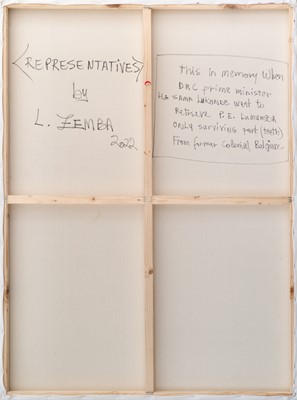 <REPRESENTATIVES>
by
L. ZEMBA
2022
This in memory When
DRC prime minister
Sama Lukonde went to
Retrieve P.E. Lumumba
only surviving part (tooth)
From former Colonial Belgium.